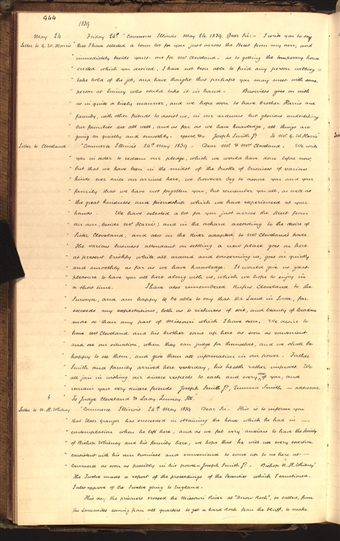 944
1839
May 24 Friday 24th Commerce Illinois May 24. 1839. Dear Sir:- I write you to say
Letter to G. W. Harris that I have selected a town lot for you just across the street from my own, and
immediately beside yours, one for Mr Cleveland. As to getting the temporary house
erected which you desired, I have not been able to find any person willing to
take hold of the job, and have thought that perhaps you may meet with some
person at Quincy who could take it in hand. Business goes on with
us in quite a lively manner, and we hope soon to have brother Harris and
family, with other friends to assist us, in our arduous but glorious undertaking
Our families are all well, and as far as we have knowledge, all things are
going on quietly and smoothly. Yours &c Joseph Smith Jr To Mr G W Harris
Letter to Cleveland "Commerce Illinois 24th May 1839. Dear Mr & Mrs Cleveland. We write
you in order to redeem our pledge, which we would have done before now,
but that we have been in the midst of the bustle of business of various
kinds ever since our arrival here, we however beg to assure you and your
family that we have not forgotten you, but remember you all, as well as
the great kindness and friendship which we have experienced at your
hands. We have selected a lot for you just across the street from
our own, beside Mr Harris; and in the orchard according to the desire of
Sister Cleveland, and also on the River adapted to Mr Cleveland's trade.
The various business attendant on settling a new place goes on here
at present briskly while all around and concerning us, goes on quietly
and smoothly as far as we have knowledge. It would give us great
pleasure to have you all here along with us, which we hope to enjoy in
a short time. I have also remembered Rufus Cleveland to the
Surveyor, and am happy to be able to say that the Land in Iowa, far
exceeds my expectations, both as to richness of soil, and beauty of location
more so than any part of Missouri which I have seen. We desire to
have Mr Cleveland and his brother come up here as soon as convenient
and see our situation, when they can judge for themselves, and we shall be
happy to see them, and give them all information in our power. Father
Smith and family arrived here yesterday, his health rather improved. We
all join in wishing our sincere respects to each and every of you, and
remain your very sincere friends Joseph Smith Jr, Emma Smith – addressed
to Judge Cleveland & Lady Quincy Ill.
Letter to N. K. Whitney "Commerce Illinois 24th May 1839 Dear Sir – This is to inform you
that Elder Granger has succeeded in obtaining the house which he had in
contemplation when he left here, and as we feel very anxious to have the family
of Bishop Whitney and his family here, we hope that he will use every exertion
consistent with his own business and convenience to come up to us here at
Commerce as soon as possibly in his power. Joseph Smith Jr. Bishop N. K. Whitney
The Twelve made a report of the proceedings of the Seventies which I sanctioned.
I also approve of the Twelve going to England.
This day, the prisoners crossed the Missouri River at "Arrow Rock", so called, from
the Lamanites coming from all quarters to get a hard rock from the bluff, to make